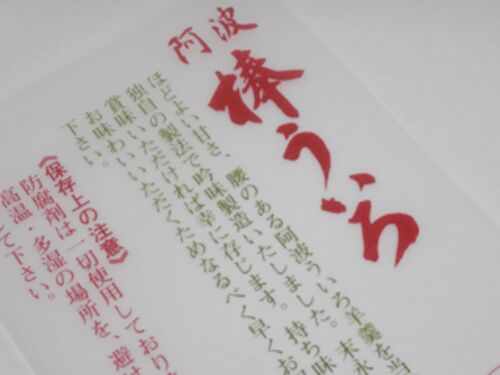 阿波
棒ういろ
ほどよい甘さ、腰のある阿波ういろ羊羹を当
独自の製法で吟味製造いたしました。末永
賞味いただければ幸に存じます。持ち味
お味わいいただくためなるべく早くお
下さい。
《保存上の注意》
防腐剤は一切使用しており
高温・多湿の場所を、避け
て下さい。